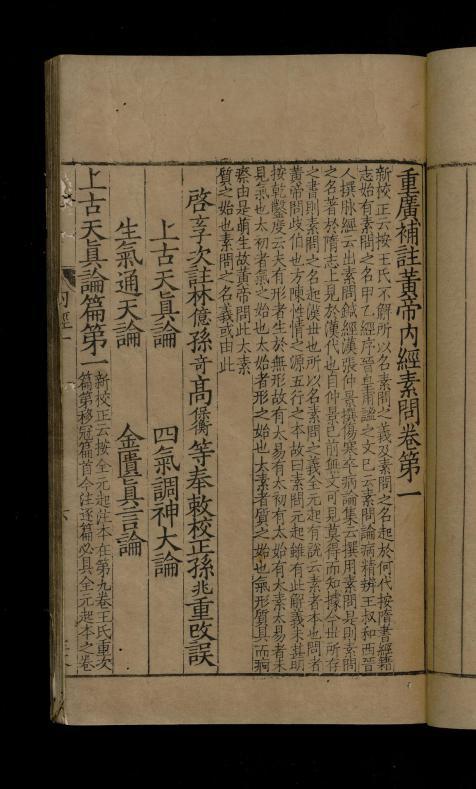 重廣補註黃帝內經素問卷第一
新校正云按王氏不解所以名素問之義及素問之名起於何代按隋書經籍
志始有素問之名甲乙經序晉皇甫謐之文已云素問論病精辨王叔和西晉
人撰脉經云出素問鍼經漢張仲景撰傷寒卒病論集云撰用素問是則素問
之名著於隋志上見於漢代也自仲景已前無文可見莫得而知據今世所存
之書則素問之名起漢世也所以名素問之義全元起有說云素者本也問者
黃帝問歧伯也方陳性情之源五行之本故曰素問元起雖有此解義未甚明
按乾鑿度云夫有形者生於無形故有太易有太初有太始有太素太易者未
見氣也太初者氣之始也太始者形之始也太素者質之始也氣形質具而痾
瘵由是萌生故黃帝問此太素
質之始也素問之名義或由此
啓玄子次註林億孫奇高保衡等奉敕校正孫兆重改誤
上古天眞論 四氣調神大論
生氣通天論 金匱眞言論
上古天眞論篇第一
新校正云按全元起注本在第九卷王氏重次
篇第移冠篇首今注逐篇必具全元起本之卷
內經一